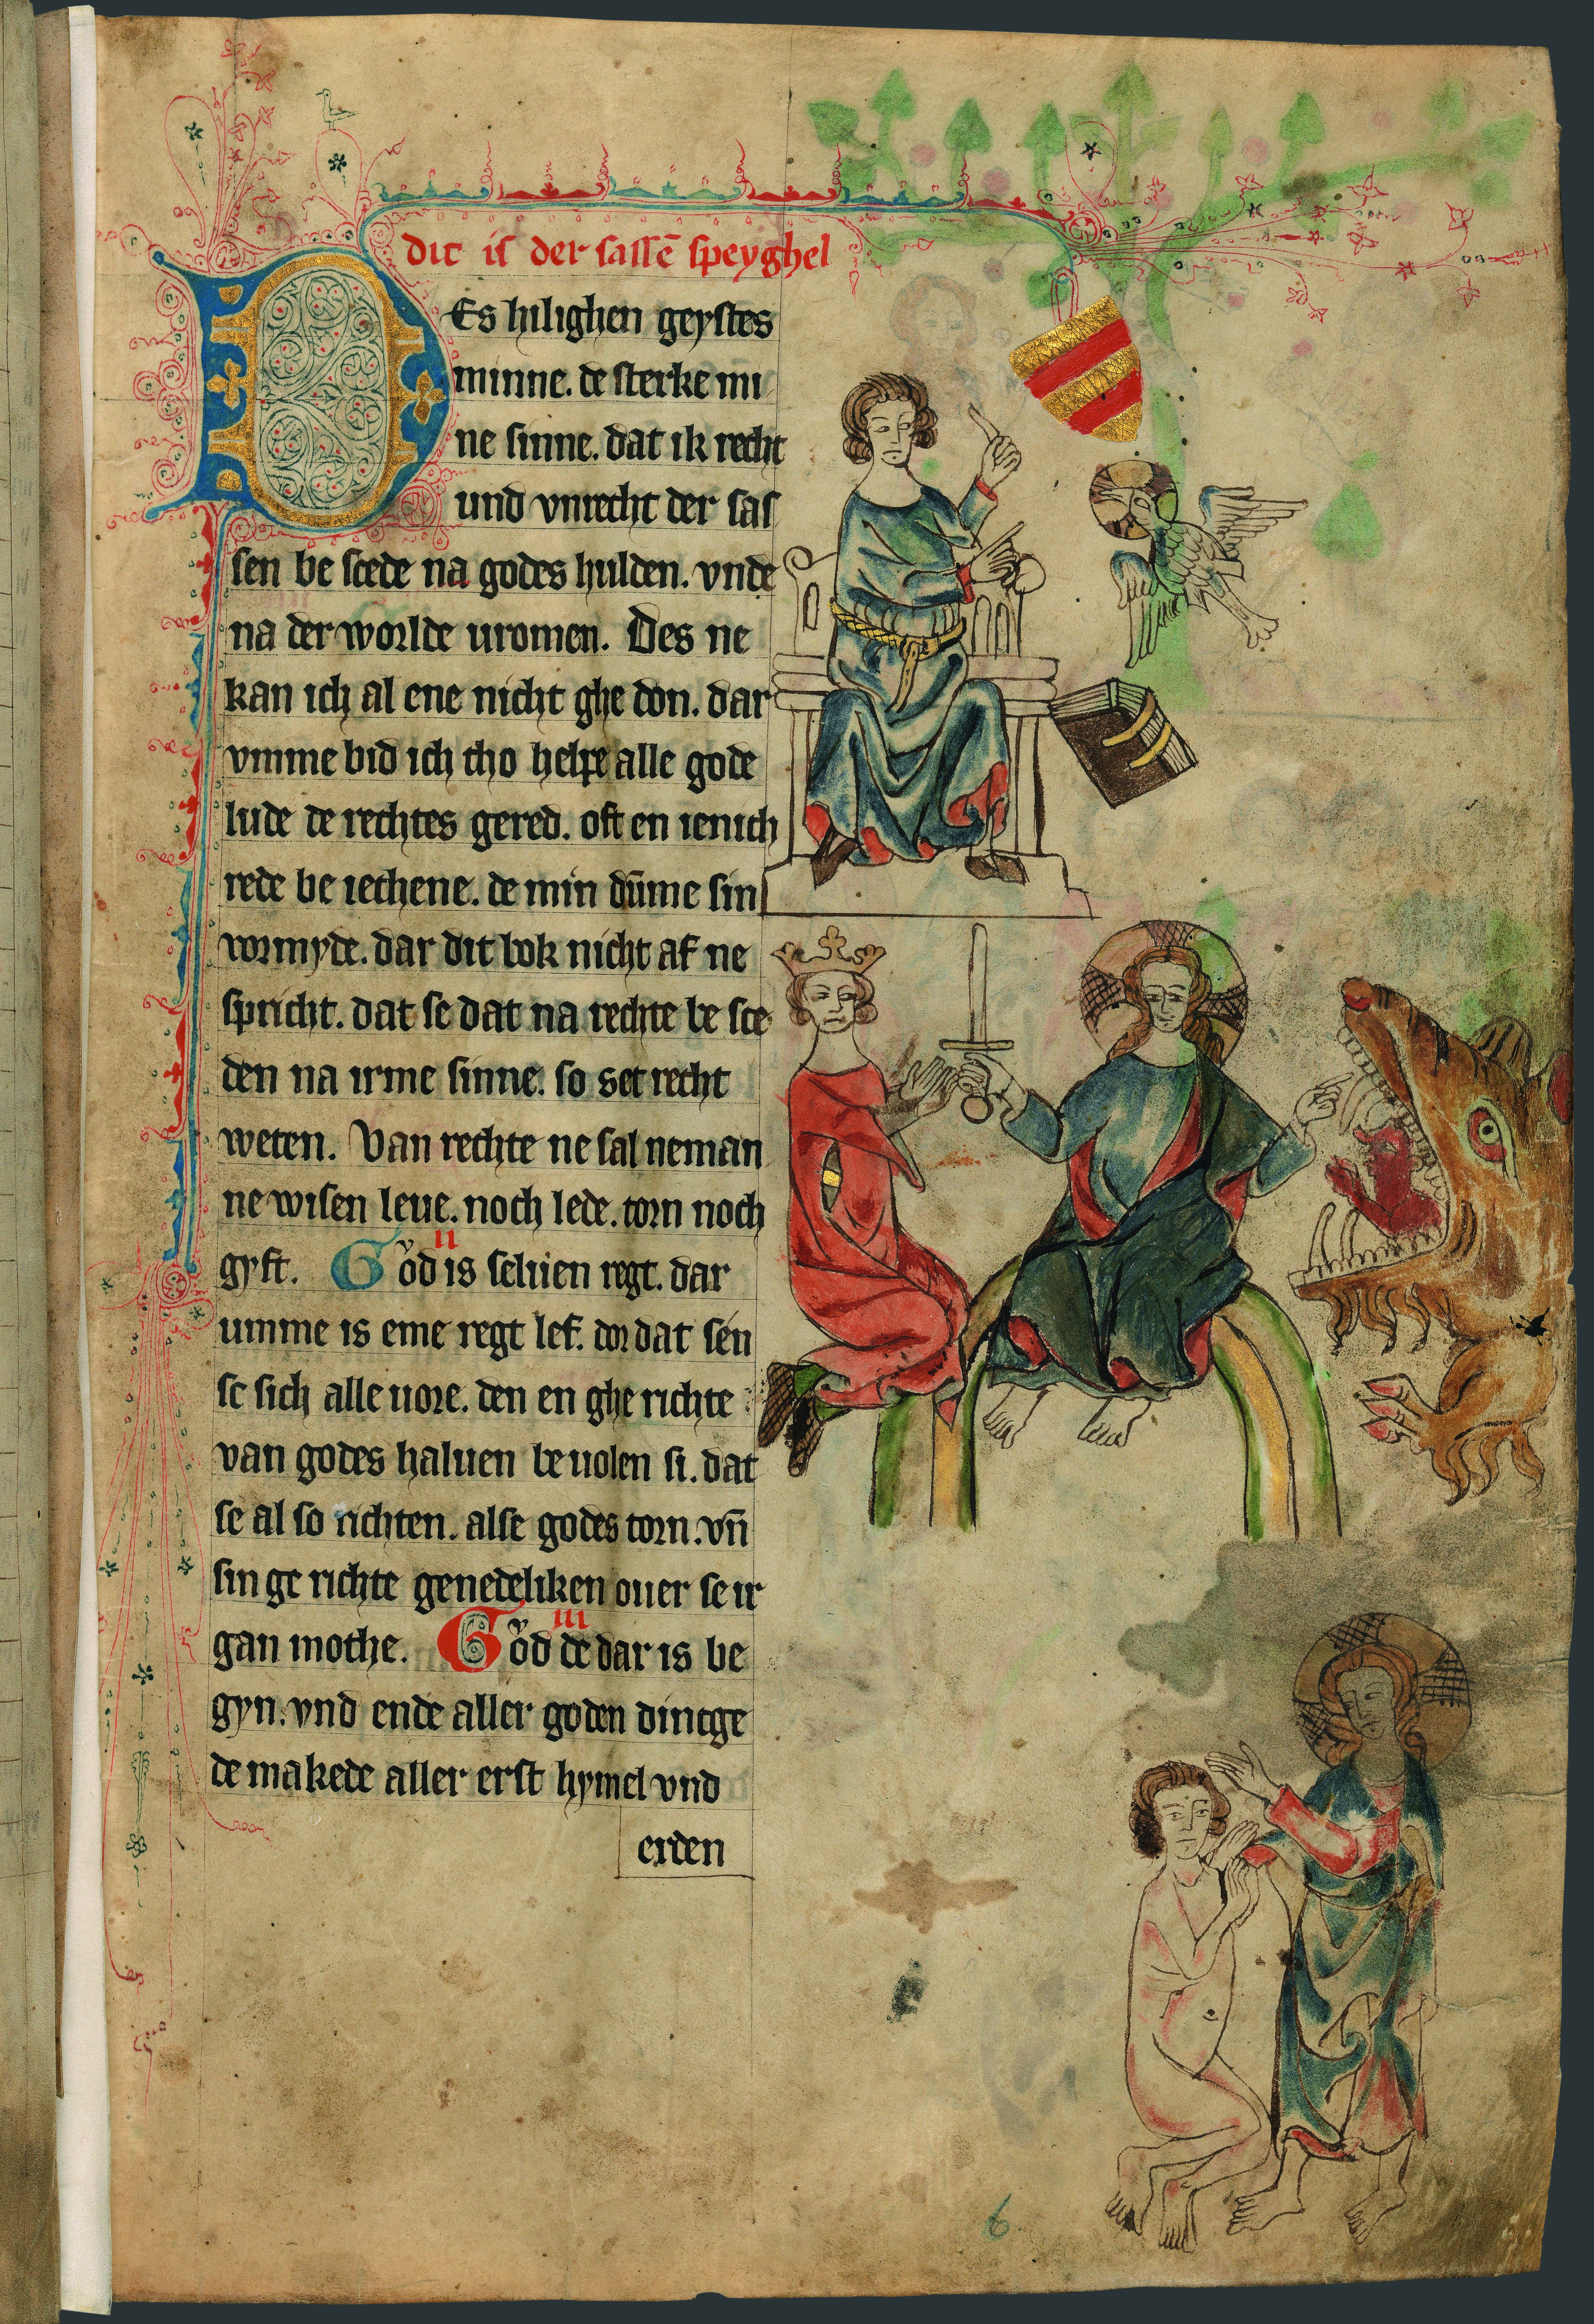 dit is der sassē speyghel
DEs hilighen geystes
minne. de sterke mi
ne sinne. dat ik recht
und vnrecht der sas
sen be scede na godes hulden. vnde
na der worlde uromen. Des ne
kan ich al ene nicht ghe don. dar
vmme bid ich tho helpe alle gode
lude de rechtes gered. oft en ienich
rede be iechene. de min dūme sin
vormyde. dar dit bok nicht af ne
spricht. dat se dat na rechte be sce
den na irme sinne. so set recht
weten. Van rechte ne sal neman
ne wisen leue. noch lede. torn noch
gyft. II Gͮod is seluen regt. dar
umme is eme regt lef. dor dat sen
se sich alle uore. den en ghe richte
van godes haluen be uolen si. dat
se al so richten. alse godes torn. vn̄
sin ge richte genedeliken ouer se ir
gan mothe. III Gͮod de dar is be
gyn. vnd ende aller goden dintge
de makede aller erst hymel vnd
erden
6